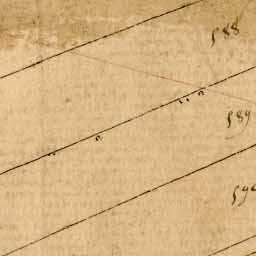 588
589
590